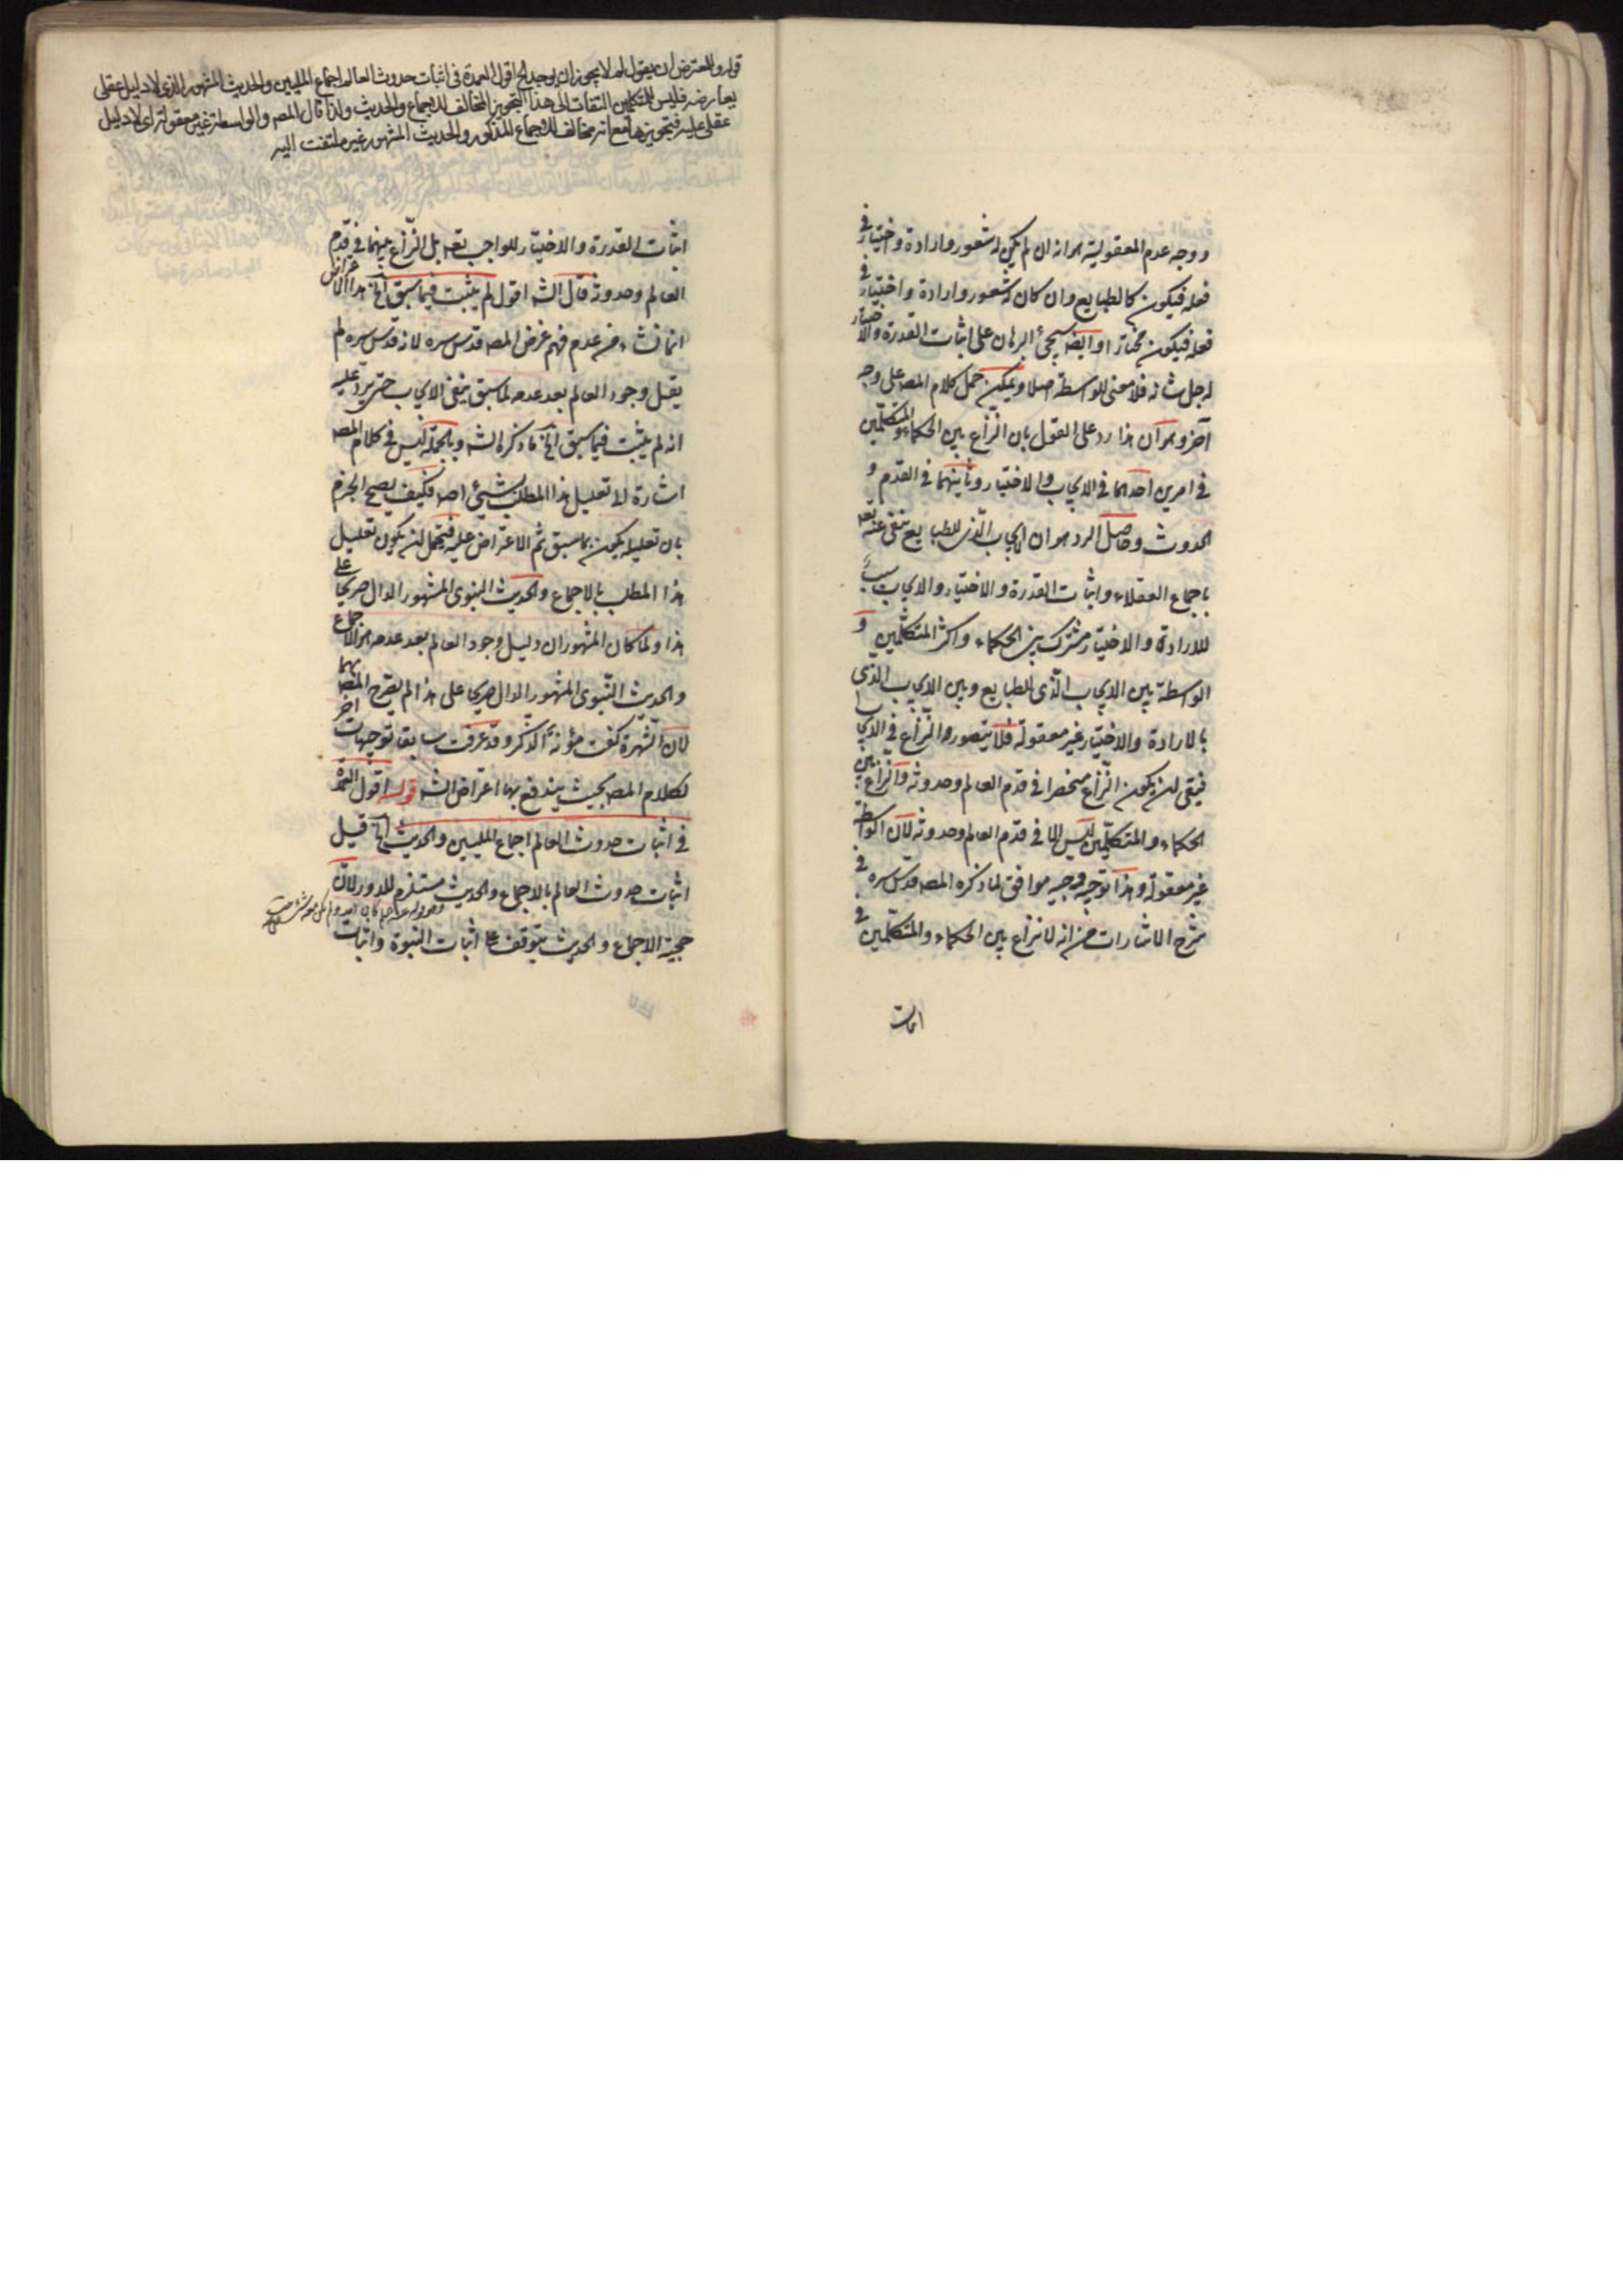 ووجه عدم المعقولية هو انه ان لم يكن له شعور وارادة واختيار في
فعله فيكون كالطبايع وان كان له شعور وارادة واختيار في
فعله فيكون مختارا وايضا سيجئ البرهان على اثبات القدرة والاختيار
له جل شانه فلا معنى للواسطة اصلا ويمكن حمل كلام المصه على وجه
آخر وهو آن هذا رد على القول بان النزاع بين الحكماء والمتكلمين
في امرين احدهما في الايجاب والاختيار وثانيهما في القدم و
الحدوث وحاصل الرد هو ان الايجاب الذى للطبايع منفى عنه تعه
باجماع العقلاء واثبات القدرة والاختيار والايجاب بسبب
للارادة والاختيار مشترك بين الحكماء واكثر المتكلمين و
الواسطة بين الايجاب الذى للطبايع وبين الايجاب الذى
بالارادة والاختيار غير معقولة فلا يتصور النزاع في الايجاب
فيبقى ان يكون النزاع منحصرا في قدم العالم وحدوثه والنزاع بين
الحكماء والمتكلمين ليس الا في قدم العالم وحدوثه لان الواسطة
غير معقولة وهذا توجيه وجيه موافق لما ذكره المصه قدس سره في
شرح الاشارات من انه لا نزاع بين الحكماء والمتكلمين في
اثبات
قوله وللمعترض ان يقول لم لا يجوز ان يوجد الخ اقول العمدة في اثبات حدوث العالم اجماع المليين والحديث المشهور الذى لا دليل عقلى
يعارضه فليس للمتكلمين التفات الى هذا التجويز المخالف للاجماع والحديث ولذا قال المصه والواسطة غير معقولة اى لا دليل
عقلى عليه فتجويزها مع انه مخالف للاجماع المذكور والحديث المشهور غير ملتفت اليه
اثبات القدرة والاختيار للواجب تعه بل النزاع بينهما في قدم
العالم وحدوثه قال الشه اقول لم يثبت فيما سبق الخ هذا الاعتراض
انما نشاء من عدم فهم غرض المصه قدس سره لانه قدس سره لم
يقل وجود العالم بعد عدمه لما سبق ينفى الايجاب حتى يرد عليه
انه لم يثبت فيما سبق الخ ما ذكره الشه وبالجملة ليس في كلام المصه
اشارة الى تعليل هذا المطلب بشيئ اصلا فكيف يصح الجزم
بان تعليله يكون بما سبق ثم الاعتراض عليه فيحتمل ان يكون تعليل
هذا المطلب بالاجماع والحديث النبوى المشهور الدال صريحا على
هذا ولما كان المشهور ان دليل وجود العالم بعد عدمه هو الاجماع
والحديث النبوى المشهور الدال صريحا على هذا لم يصرح المصه بهما
لان الشهرة كفت مؤنة الذكر وقد عرفت سابقا توجيهات اخر
لكلام المصه بحيث يندفع بها اعتراض الشه قوله اقول العمدة
في اثبات حدوث العالم اجماع المليين والحديث الخ قيل
اثبات حدوث العالم بالاجماع والحديث مستلزم للدور لان
حجية الاجماع والحديث يتوقف على اثبات النبوة واثبات